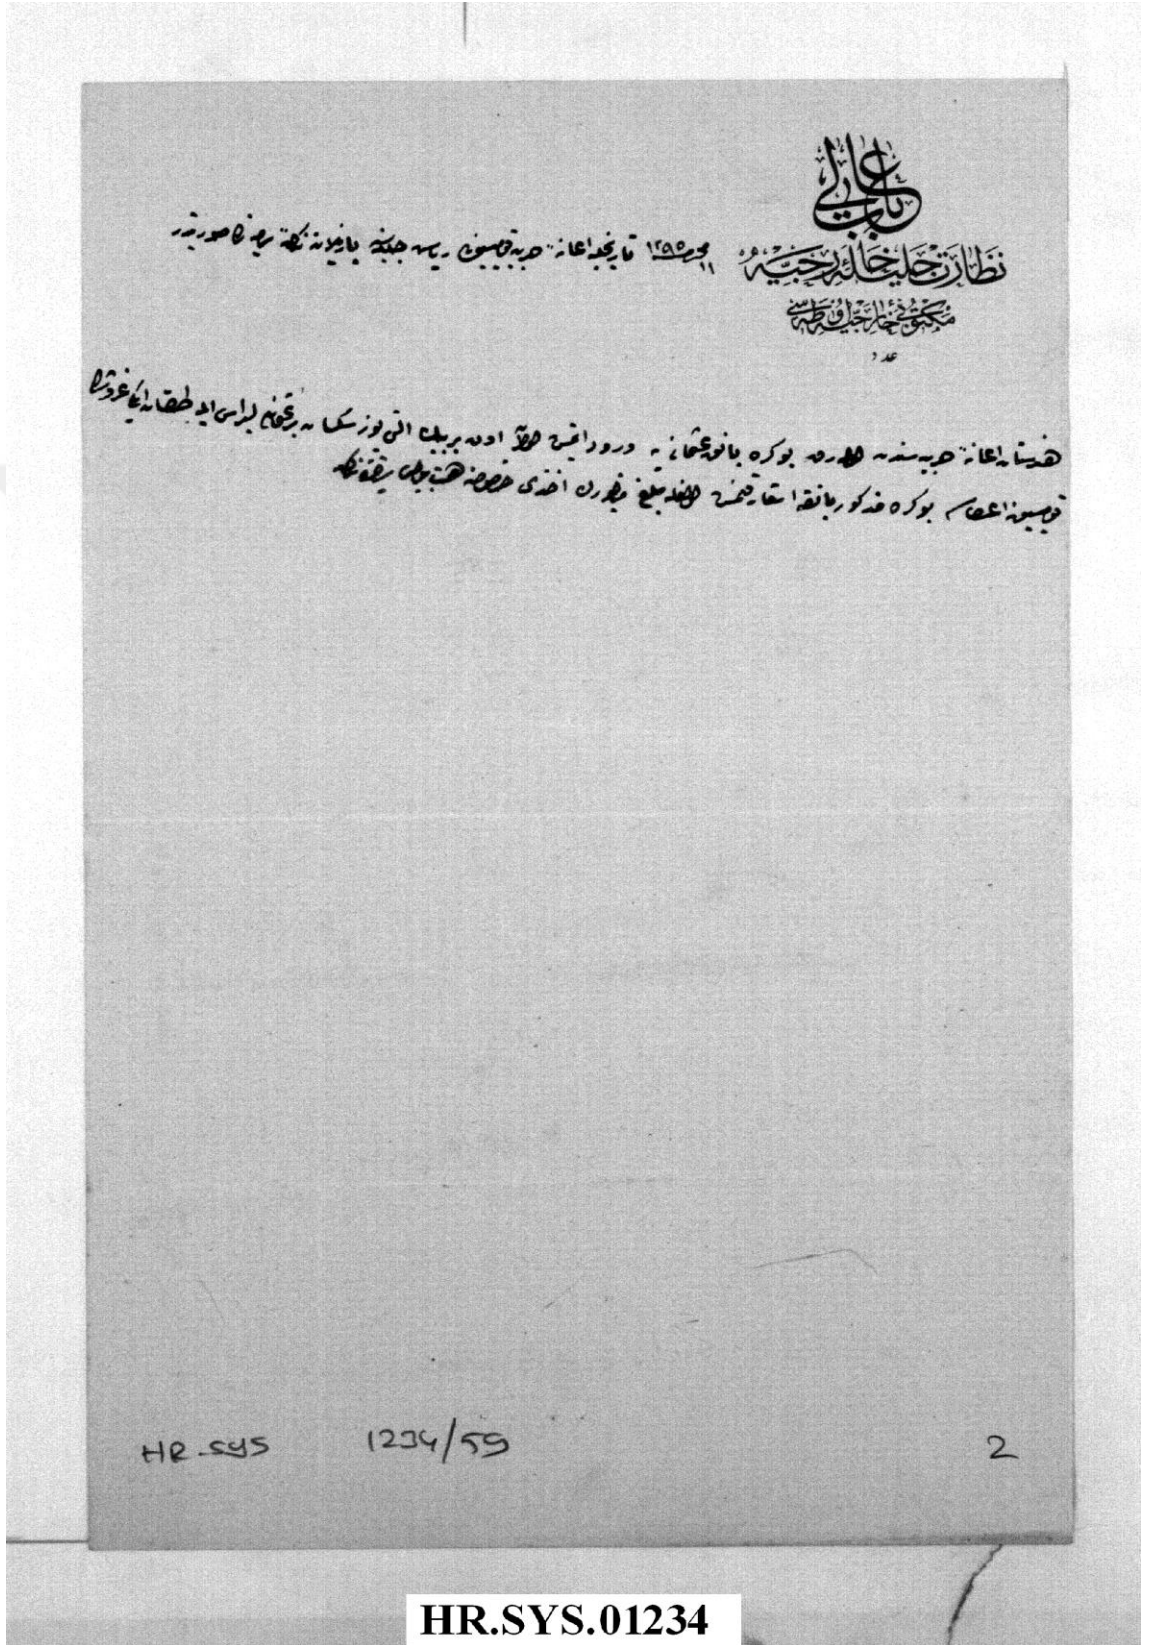 باب عالی
نظارت جلیلهٔ خارجیه
مکتوبی خارجیه اوطه‌سی
عدد
۱۱ محرم ۱۲۹۵ تاریخیله اعانهٔ حربیه قومیسیونی ریاست جلیله‌سنه یازیلان تذکرهٔ صورتیدر
هندستان اعانهٔ حربیه‌سندن اوله‌رق بو کره بانق عثمانی‌یه ورود ایتمش اولان اون بر بیك التی یوز سکسان بر عثمانلی لیراسی ایله طقسان ایکی غروشك
قومیسیون اعضاسی بو کره مذکور بانقه اشعار قلنمش اولمغله مبلغ مذبورك اخذی خصوصنه همت
HR.SYS 1234/59 2
HR.SYS.01234